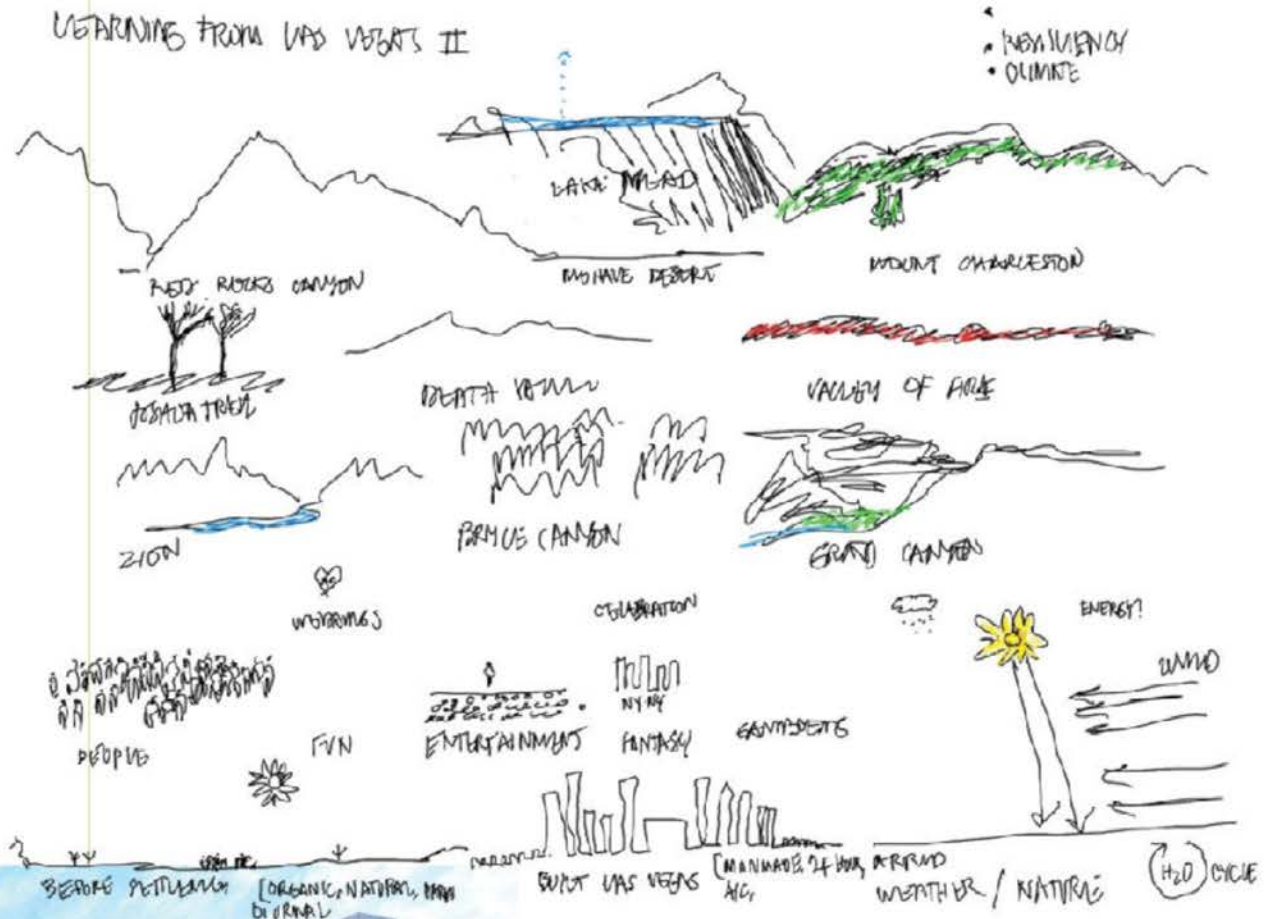 LEARNING FROM LAS VEGAS II
• RESILIENCY
• CLIMATE
LAKE MEAD
RED ROCKS CANYON
MOHAVE DESERT
MOUNT CHARLESTON
JOSHUA TREE
DEATH VALLEY
VALLEY OF FIRE
ZION
BRYCE CANYON
GRAND CANYON
WEDDINGS
CELEBRATION
ENERGY!
WIND
NY NY
PEOPLE
FUN
ENTERTAINMENT
FANTASY
BEFORE SETTLEMENT
[ORGANIC, NATURAL,
DIURNAL
BUILT LAS VEGAS
[MANMADE, 24 HOUR,
A/C,
WEATHER / NATURE
H2O CYCLE